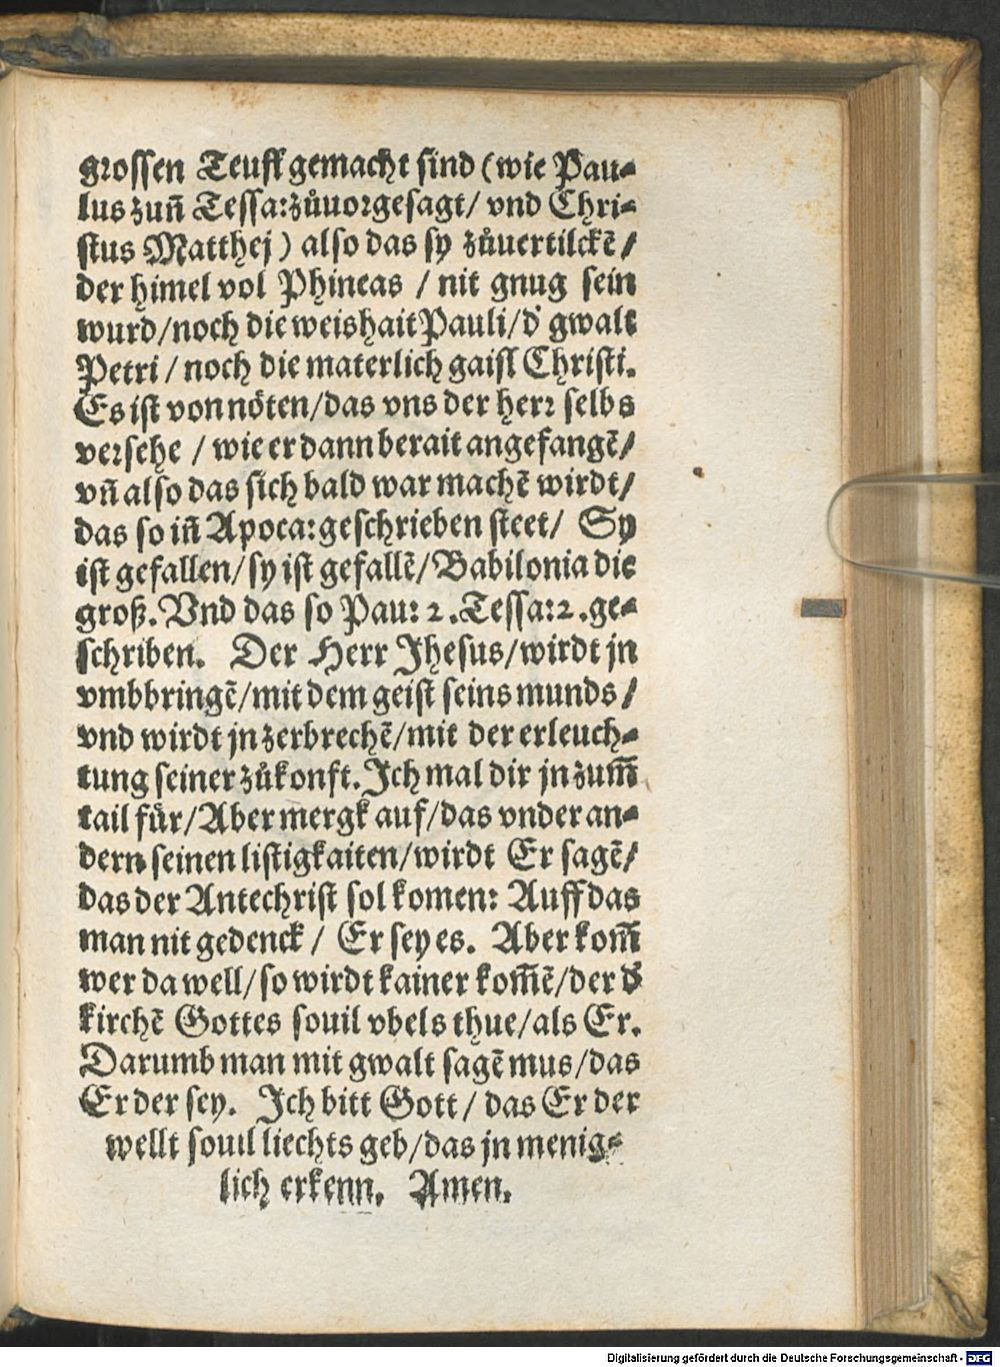 grossen Teuff gemacht sind (wie Pau-
lus zuñ Tessa: zůuorgesagt/ vnd Chri-
stus Matthej) also das sy zůuertilckē/
der himel vol Phineas / nit gnug sein
wurd/noch die weishait Pauli/d' gwalt
Petri / noch die materlich gaisl Christi.
Es ist von nöten/das vns der herr selbs
versehe / wie er dann berait angefangē/
vñ also das sich bald war machē wirdt/
das so iñ Apoca: geschrieben steet/ Sy
ist gefallen/ sy ist gefallē/Babilonia die
groß. Vnd das so Pau: 2. Tessa: 2. ge-
schriben. Der Herr Jhesus/wirdt jn
vmbbringē/mit dem geist seins munds/
vnd wirdt jn zerbrechē/mit der erleuch-
tung seiner zůkonft. Ich mal dir jn zum̃
tail für/Aber mergk auf/das vnder an-
dern seinen listigkaiten/wirdt Er sagē/
das der Antechrist sol komen: Auff das
man nit gedenck / Er sey es. Aber kom̃
wer da well/so wirdt kainer kom̃ē/der d'
kirchē Gottes souil vbels thue/als Er.
Darumb man mit gwalt sagē mus/das
Er der sey. Ich bitt Gott/ das Er der
wellt souil liechts geb/das jn menig-
lich erkenn. Amen.
Digitalisierung gefördert durch die Deutsche Forschungsgemeinschaft - DFG